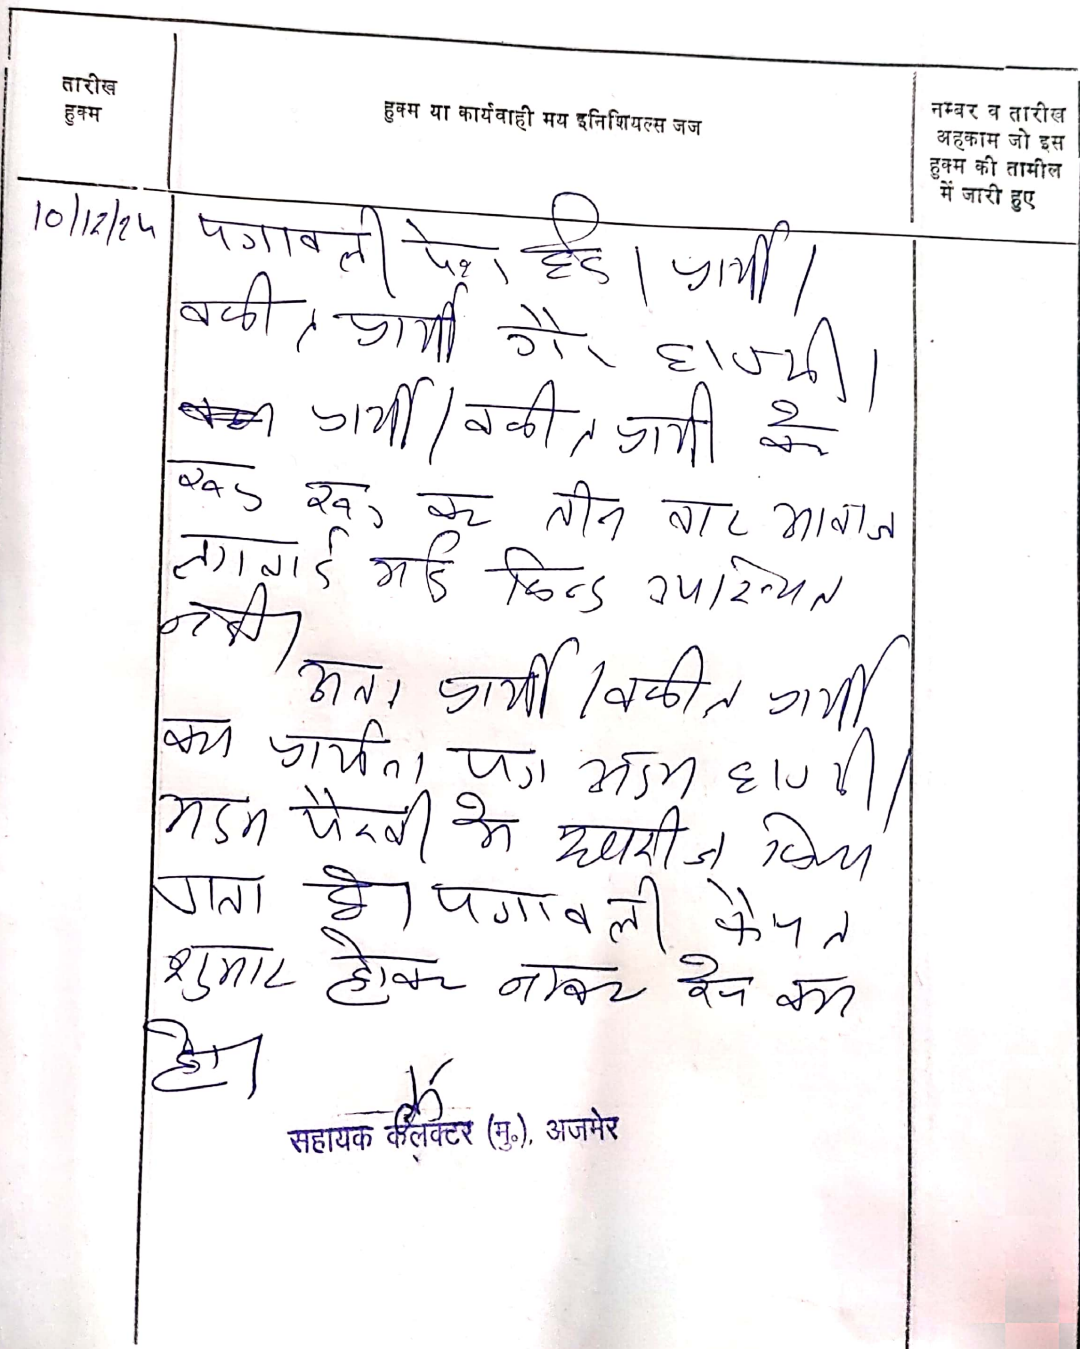 तारीख
हुक्म
हुक्म या कार्यवाही मय इनिशियल्स जज
नम्बर व तारीख
अहकाम जो इस
हुक्म की तामील
में जारी हुए
10/12/24
पत्रावली पेश हुई। प्रार्थी/
वकील प्रार्थी गैर हाजरी।
प्रार्थी/वकील प्रार्थी के
रूक रूक कर तीन बार आवाज
लगवाई गई किन्तु उपस्थित
नहीं।
अतः प्रार्थी/वकील प्रार्थी
का प्रार्थना पत्र अदम हाजरी/
अदम पैरवी में खारीज किया
जाता है। पत्रावली फैसल
शुमार होकर नम्बर से कम
हो।
सहायक कलक्टर (मु०), अजमेर